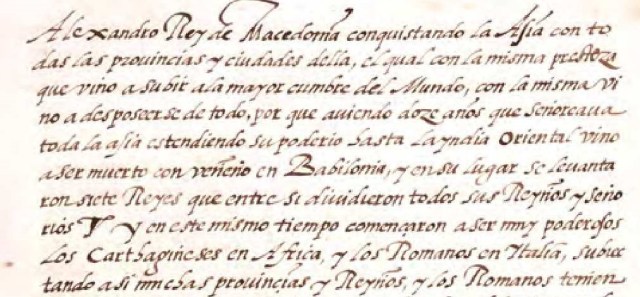 Alexandro Rey de Macedonia conquistando la Asia con to
das las provincias y ciudades della, el qual con la misma presteza
que vino a subir a la mayor cumbre del Mundo, con la misma vi
no a desposeerse de todo, por que aviendo doze años que señoreava
toda la asia estendiendo su poderio hasta la yndia Oriental vino
a ser muerto con veneño en Babilonia, y en su lugar se levanta
ron siete Reyes que entre si dividieron todos sus Reyños y seño
rios Y y en este mismo tiempo començaron a ser muy poderosos
los Carthagineses en Africa, y los Romanos en Italia, subiec
tando asi muchas provincias y Reyños, y los Romanos tenien